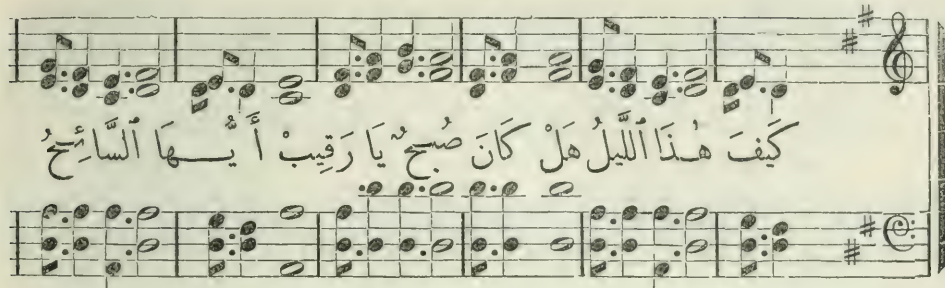 كَيْفَ هٰذَا ٱللَّيْلُ هَلْ كَانَ صُبْحٌ يَا رَقِيبْ أَيُّـهَا ٱلسَّائِحُ